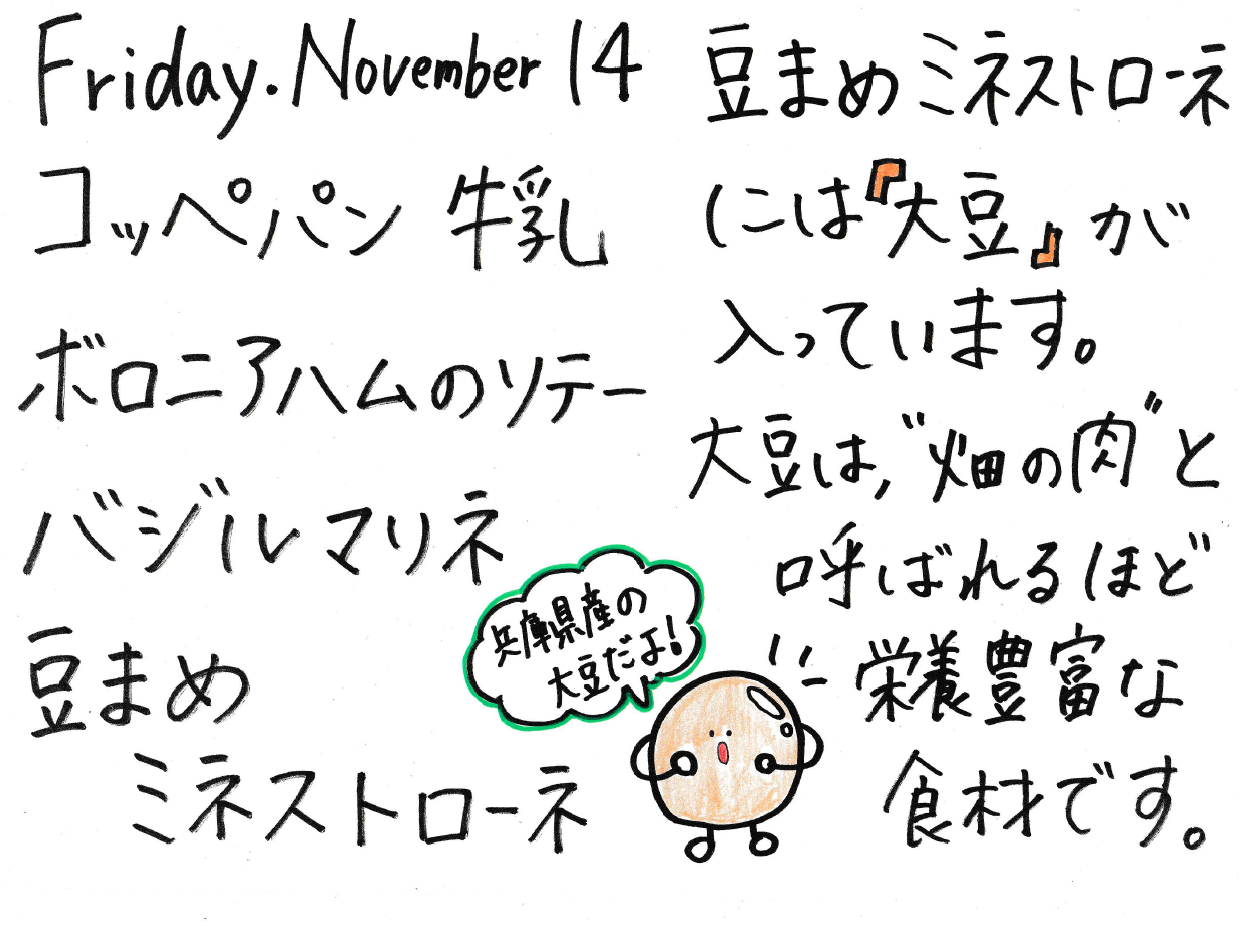 Friday. November 14
コッペパン 牛乳
ボロニアハムのソテー
バジルマリネ
豆まめ
ミネストローネ
兵庫県産の
大豆だよ!
豆まめミネストローネ
には『大豆』が
入っています。
大豆は,"畑の肉"と
呼ばれるほど
栄養豊富な
食材です。